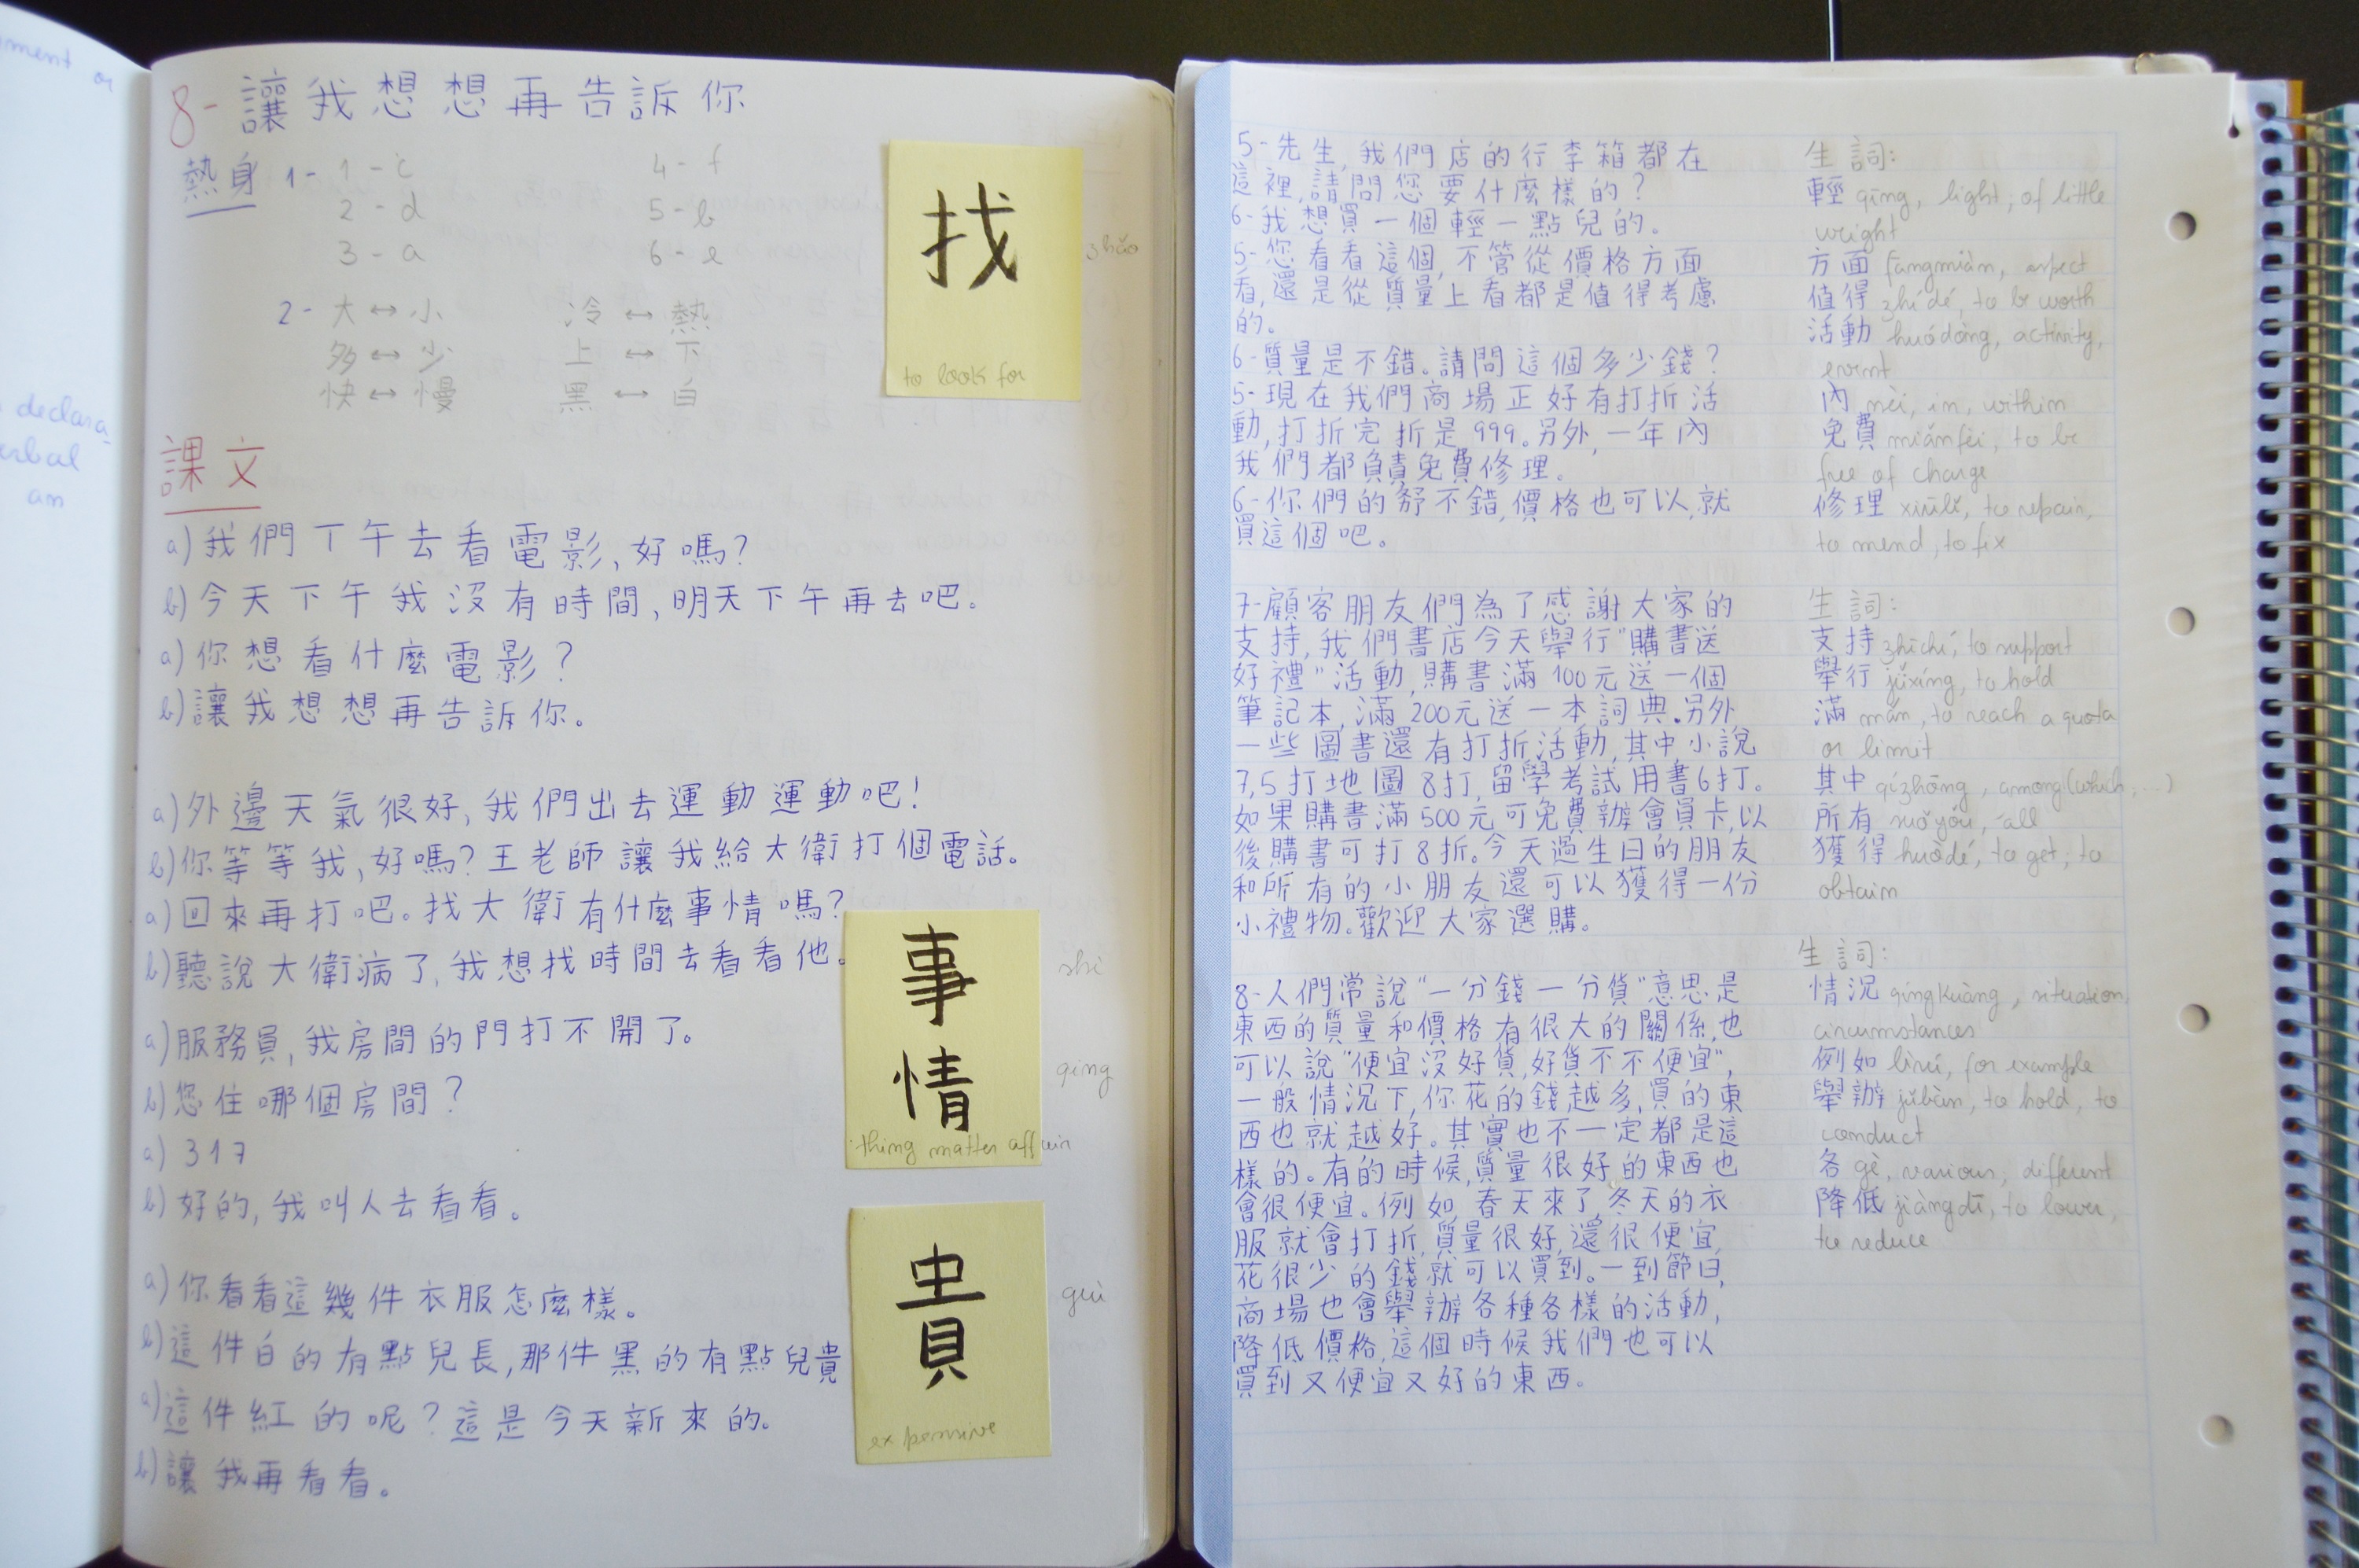 ment or
declara-
erbal
an
8- 讓我想想再告訴你
熱身 1- 1 - c 4 - f
2 - d 5 - b
3 - a 6 - e
2- 大 ↔ 小 冷 ↔ 熱
多 ↔ 少 上 ↔ 下
快 ↔ 慢 黑 ↔ 白
找
to look for
zhǎo
課文
a) 我們丅午去看電影, 好嗎?
b) 今天下午我沒有時間, 明天下午再去吧。
a) 你想看什麼電影?
b) 讓我想想再告訴你。
a) 外邊天氣很好, 我們出去運動運動吧!
b) 你等等我, 好嗎? 王老師讓我給大衛打個電話。
a) 回來再打吧。找大衛有什麼事情嗎?
b) 聽說大衛病了, 我想找時間去看看他。
a) 服務員, 我房間的門打不開了。
b) 您住哪個房間?
a) 317
b) 好的, 我叫人去看看。
a) 你看看這幾件衣服怎麼樣。
b) 這件白的有點兒長, 那件黑的有點兒貴
a) 這件紅的呢? 這是今天新來的。
b) 讓我再看看。
事 shì
情 qing
thing matter affair
貴 guì
expensive
5- 先生, 我們店的行李箱都在
這裡, 請問您要什麼樣的?
6- 我想買一個輕一點兒的。
5- 您看看這個, 不管從價格方面
看, 還是從質量上看都是值得考慮
的。
6- 質量是不錯。請問這個多少錢?
5- 現在我們商場正好有打折活
動, 打折完折是999。另外, 一年內
我們都負責免費修理。
6- 你們的舒不錯, 價格也可以, 就
買這個吧。
7- 顧客朋友們為了感謝大家的
支持, 我們書店今天舉行"購書送
好禮"活動, 購書滿100元送一個
筆記本, 滿200元送一本詞典。另外,
一些圖書還有打折活動, 其中, 小說
7,5打地圖8打, 留學考試用書6打。
如果購書滿500元可免費辦會員卡, 以
後購書可打8折。今天過生日的朋友
和所有的小朋友還可以獲得一份
小禮物。歡迎大家選購。
8- 人們常說"一分錢一分貨"意思是
東西的質量和價格有很大的關係, 也
可以說"便宜沒好貨, 好貨不不便宜",
一般情況下, 你花的錢越多, 買的東
西也就越好。其實也不一定都是這
樣的。有的時候, 質量很好的東西也
會很便宜。例如, 春天來了, 冬天的衣
服就會打折, 質量很好, 還很便宜,
花很少的錢就可以買到。一到節日,
商場也會舉辦各種各樣的活動,
降低價格, 這個時候我們也可以
買到又便宜又好的東西。
生詞:
輕 qīng, light; of little
weight
方面 fāngmiàn, aspect
值得 zhídé, to be worth
活動 huódòng, activity,
event
內 nèi, in, within
免費 miǎnfèi, to be
free of charge
修理 xiūlǐ, to repair,
to mend, to fix
生詞:
支持 zhīchí, to support
舉行 jǔxíng, to hold
滿 mǎn, to reach a quota
or limit
其中 qízhōng, among (which, ...)
所有 suǒyǒu, all
獲得 huòdé, to get, to
obtain
生詞:
情況 qíngkuàng, situation,
circumstances
例如 lìrú, for example
舉辦 jǔbàn, to hold, to
conduct
各 gè, various, different
降低 jiàngdī, to lower,
to reduce